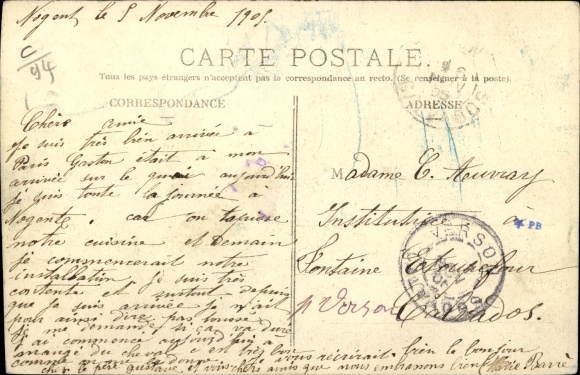 Nogent, le 5 Novembre 1905.
C/94
CARTE POSTALE.
Tous les pays étrangers n'acceptent pas la correspondance au recto. (Se renseigner à la poste).
CORRESPONDANCE
Chère amie
Je suis très bien arrivée à
Paris Gaston était a mon
arrivée sur le quai aujourd'hui
je suis toute la journée à
Nogent, car on tapisse
notre cuisine et Demain
je commencerait notre
installation je suis très
contente et surtout depuis
que je suis arrivée je n'ait
pour ainsi dire pas toussé
je me demande si ça va duré
j'ai commencé aujourd'hui a
mangé du cheval c'en très bon
comme on me la donné. Je vous récrirait bien le bonjour
chez le père Gustave et vous chers amis que nous embrassons bien Marie Barré
ADRESSE
Madame C. Auvray
Institutrice à
Fontaine Etoupefour
p Verson
Calvados.
VERSON
PB